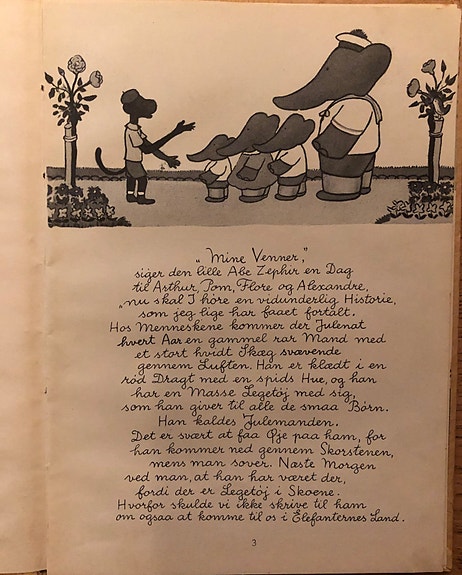 „Mine Venner,"
siger den lille Abe Zephir en Dag
til Arthur, Pom, Flore og Alexandre,
„nu skal I höre en vidunderlig Historie,
som jeg lige har faaet fortalt.
Hos Menneskene kommer der Julenat
hvert Aar en gammel rar Mand med
et stort hvidt Skæg svævende
gennem Luften. Han er klædt i en
röd Dragt med en spids Hue, og han
har en Masse Legetöj med sig,
som han giver til alle de smaa Börn.
Han kaldes Julemanden.
Det er svært at faa Öje paa ham, for
han kommer ned gennem Skorstenen,
mens man sover. Næste Morgen
ved man, at han har været der,
fordi der er Legetöj i Skoene.
Hvorfor skulde vi ikke skrive til ham
om ogsaa at komme til os i Elefanternes Land.
3